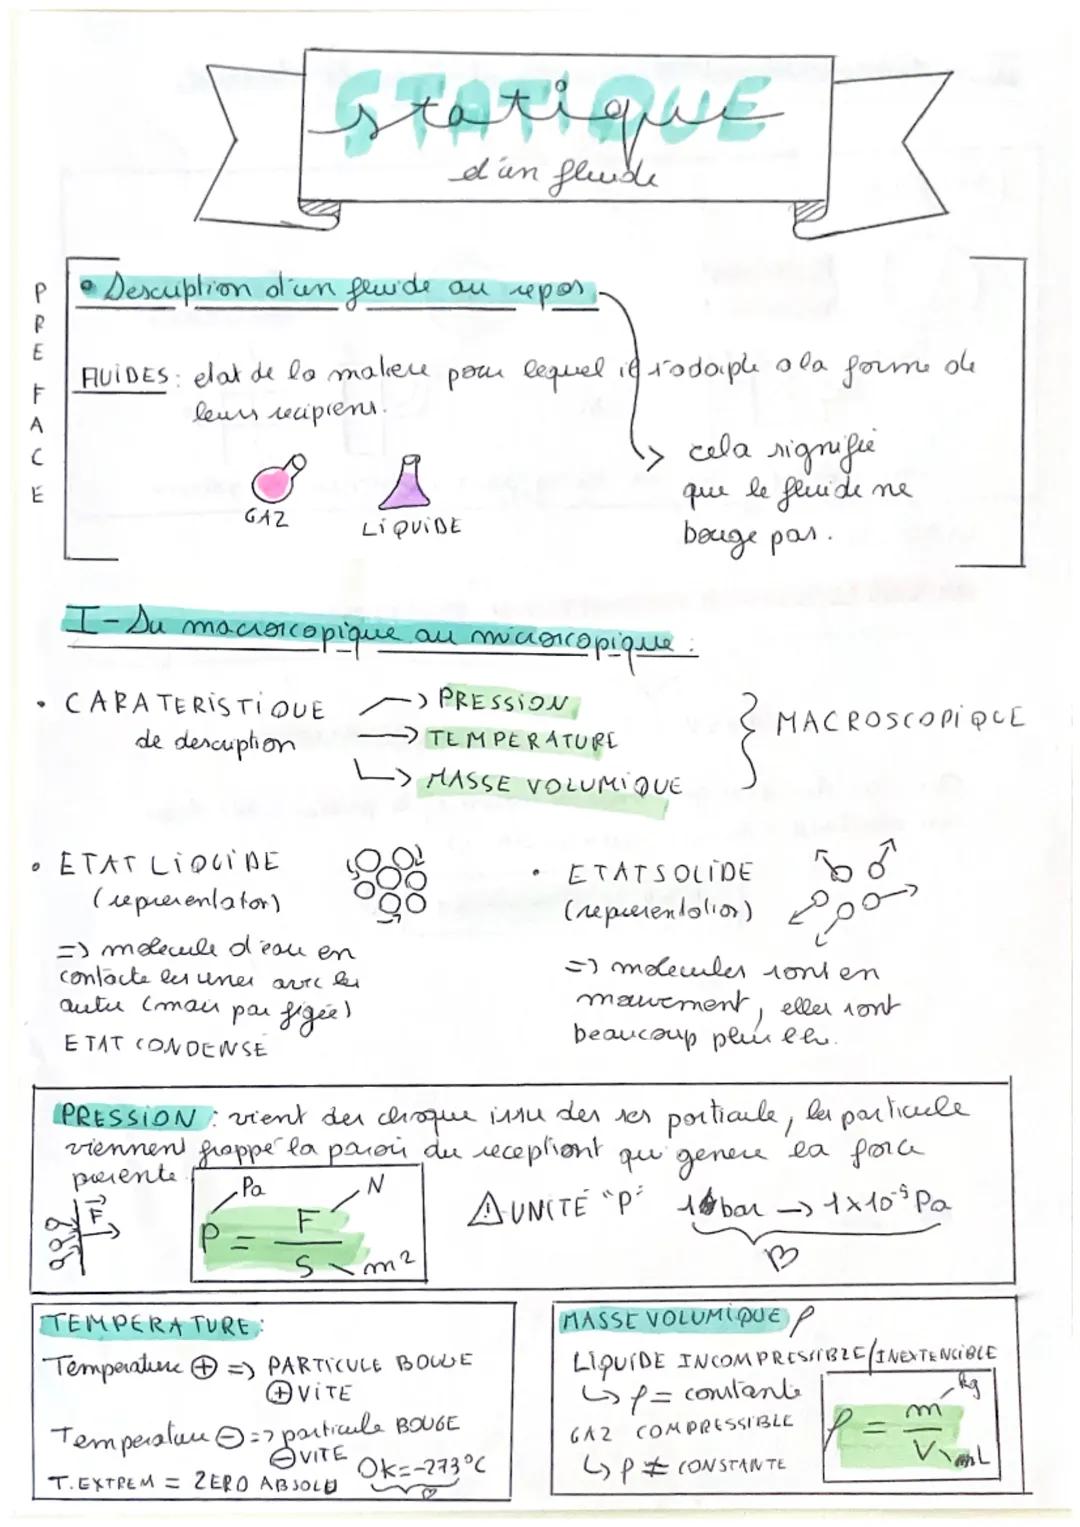 STATIQUE
statique
d'un fluide
PREFACE
• Description d'un fluide au repos
FlUiDES : etat de la matiere pour lequel il s'adapte a la forme de
leurs recipiens.
cela signifie
que le fluide ne
bouge pas.
GAZ
LiQUiDE
I - Du macroscopique au microscopique :
• CARATERiSTiQUE
de description
-> PRESSiON
-> TEMPERATURE
-> MASSE VOLUMiQUE
MACROSCOPiQUE
• ETAT LiQUiDE
(representator)
=> molecule d'eau en
contacte les unes avec les
autre (mais pas figée)
ETAT CONDENSÉ
• ETAT SOLiDE
(representation)
=> molecules sont en
mouvement, elles sont
beaucoup plus
PRESSiON : vient des choque issu des ses particule, les particule
viennent frappé la paroi du receptiont qui genere la force
pressente.
F
Pa
N
P = F / S
m²
⚠ UNiTÉ "P" 1 bar -> 1×10⁻⁵ Pa
TEMPERATURE :
Température ⊕ => PARTiCULE BOUGE
⊕ ViTE
Temperature ⊖ => particule BOUGE
⊖ ViTE
T. EXTREM = ZERO ABSOLU
0k = -273°C
MASSE VOLUMiQUE ρ
LiQUiDE INCOMPRESSiBLE/INEXTENCiBLE
↳ ρ = constante
GAZ COMPRESSIBLE
↳ ρ ≠ CONSTANTE
kg
ρ = m / V
mL